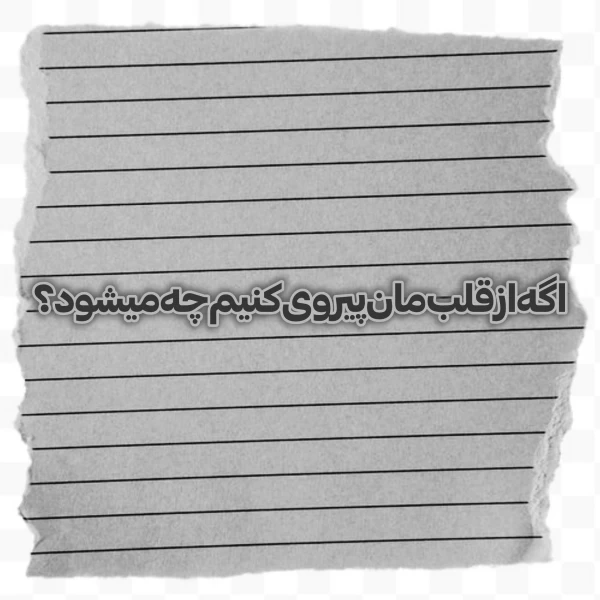 اگه از قلب مان پیروی کنیم چه میشود؟